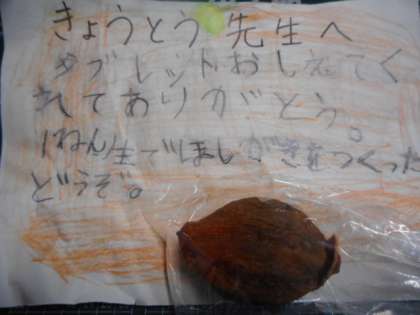 きょうとう先生へ
タブレットおしえてく
れてありがとう。
1ねん生でほしがきをつくった
どうぞ。